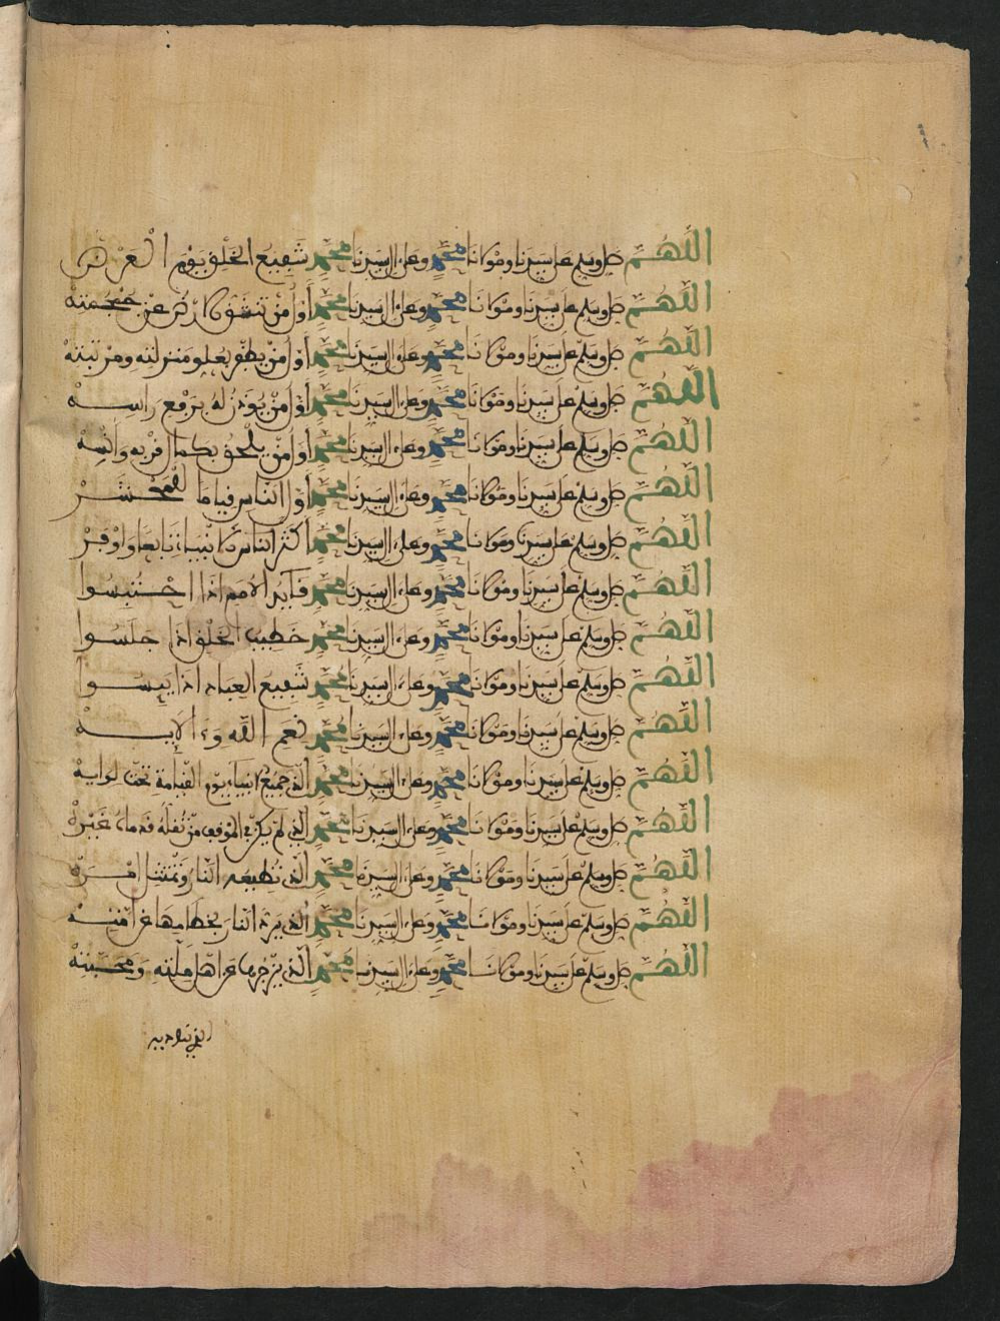 اللهم صل وسلم على سيدنا ومولانا محمد وعلى ال سيدنا محمد شفيع الخلق يوم العرض
اللهم صل وسلم على سيدنا ومولانا محمد وعلى ال سيدنا محمد أول من تنشق الارض عن
اللهم صل وسلم على سيدنا ومولانا محمد وعلى ال سيدنا محمد أول من يظفر بعلو منزلته ومرتبته
اللهم صل وسلم على سيدنا ومولانا محمد وعلى ال سيدنا محمد أول من يوذن له برفع راسه
اللهم صل وسلم على سيدنا ومولانا محمد وعلى ال سيدنا محمد أول من يلحق بكمال قربه وأنسه
اللهم صل وسلم على سيدنا ومولانا محمد وعلى ال سيدنا محمد أول الناس قياما للمحشر
اللهم صل وسلم على سيدنا ومولانا محمد وعلى ال سيدنا محمد أكثر الناس تابعا وأوفر
اللهم صل وسلم على سيدنا ومولانا محمد وعلى ال سيدنا محمد قآئد الامم اذا احتبسوا
اللهم صل وسلم على سيدنا ومولانا محمد وعلى ال سيدنا محمد خطيب الخلق اذا جلسوا
اللهم صل وسلم على سيدنا ومولانا محمد وعلى ال سيدنا محمد شفيع العباد اذا ييسوا
اللهم صل وسلم على سيدنا ومولانا محمد وعلى ال سيدنا محمد نعم الله وءالايه
اللهم صل وسلم على سيدنا ومولانا محمد وعلى ال سيدنا محمد الذي جميع الانبياء يوم القيامة تحت لوايه
اللهم صل وسلم على سيدنا ومولانا محمد وعلى ال سيدنا محمد الذي لم يكن في الموقف من غيره
اللهم صل وسلم على سيدنا ومولانا محمد وعلى ال سيدنا محمد الذي تطيعه النار وتمتثل امره
اللهم صل وسلم على سيدنا ومولانا محمد وعلى ال سيدنا محمد الذي يرد النار بخطامها عن أمته
اللهم صل وسلم على سيدنا ومولانا محمد وعلى ال سيدنا محمد الذي يزجرها عن اهل ملته ومحبته